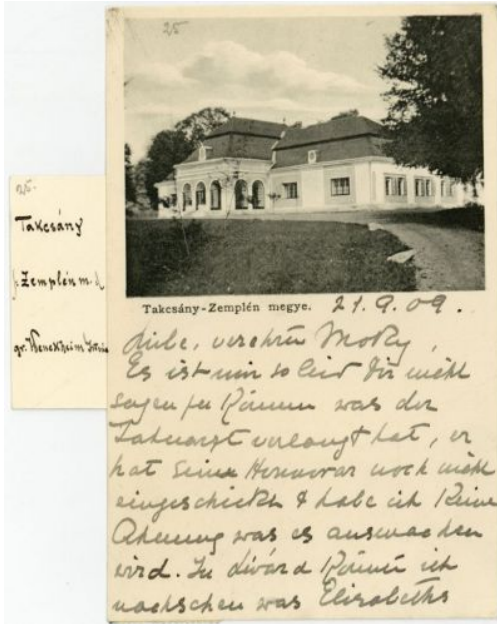 25
25.
Takcsány
Zemplén m.
gr. Wenckheim
Takcsány-Zemplén megye. 21.9.09.
Liebe, verehrte Moky,
Es ist mir so leid Dir nicht
sagen zu können was der
Zahnarzt verlangt hat, er
hat seine Honorar noch nicht
eingeschickt & habe ich keine
Ahnung was es ausmachen
wird. In Divárd könnt ich
nachsehen was Elisabeths